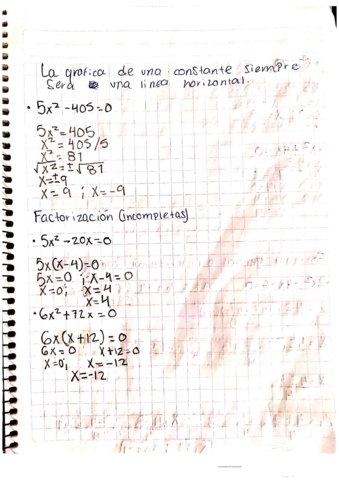 La grafica de una constante siempre
sera una linea horizontal.
• 5x² - 405 = 0
5x² = 405
x² = 405/5
x² = 81
√x² = ± √81
x = ±9
x = 9 ; x = -9
Factorización (incompletas)
• 5x² - 20x = 0
5x(x-4) = 0
5x = 0 ; x - 4 = 0
x = 0 ; x = 4
x = 4
• 6x² + 72x = 0
6x(x + 12) = 0
6x = 0 x + 12 = 0
x = 0 ; x = -12
x = -12